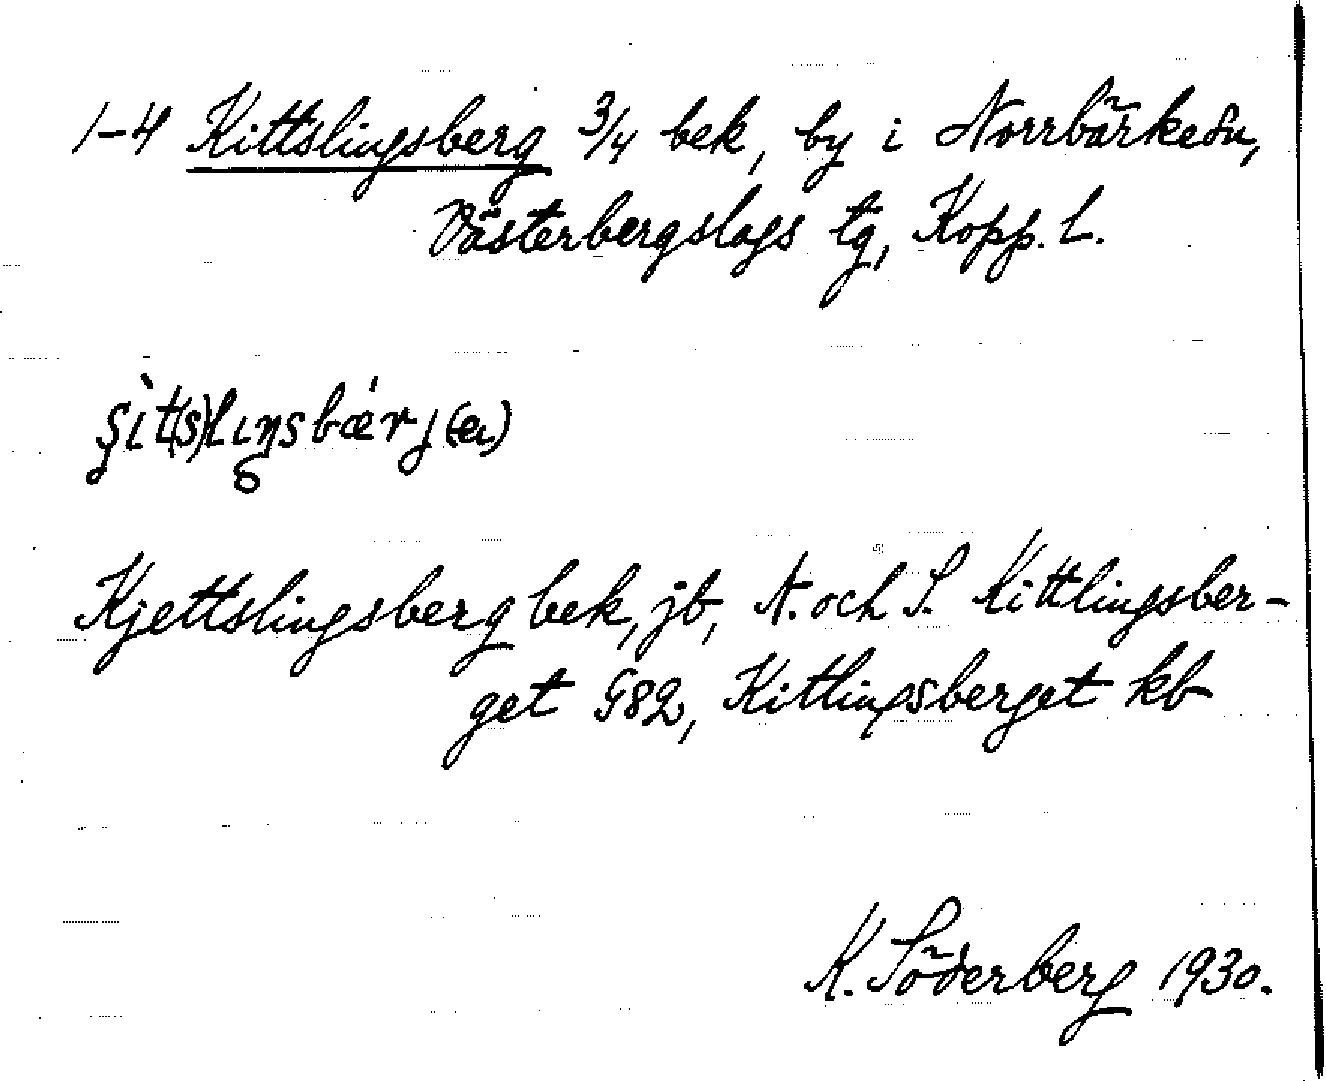 1-4 Kittslingsberg 3/4 bek, by i Norrbärke sn,
Västerbergslags tg, Kopp. L.
Kjettslingsberg bek, jb, N. och S. Kittlingsber-
get G82, Kitlingsberget kb
K. Söderberg 1930.